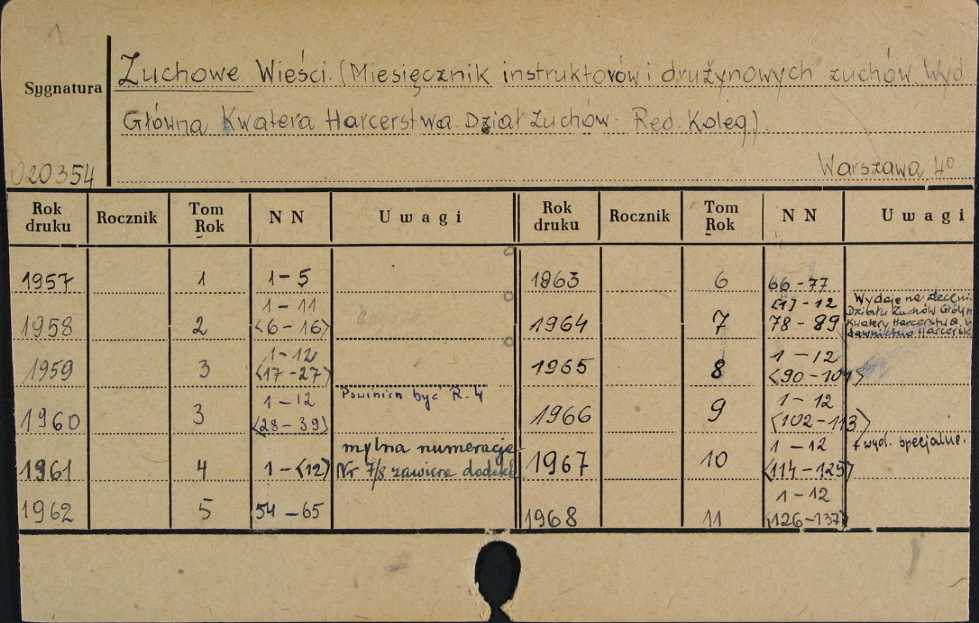 Zuchowe Wieści. (Miesięcznik instruktorów i drużynowych zuchów. Wyd
Główna Kwatera Harcerstwa. Dział Zuchów. Red. Koleg).
Warszawa 4°
Sygnatura
020354
Rok druku Rocznik Tom Rok NN Uwagi Rok druku Rocznik Tom Rok NN Uwagi
1957 1 1-5 1963 6 66-77
1958 2 1-11 <6-16> 1964 7 [1]-12 78-89 Wydaje na zleceni
Działu Zuchów Główn
Kwatery Harcerstwa
1959 3 1-12 <17-27> 1965 8 1-12 <90-101>
1960 3 1-12 <28-39> Powinien być R. 4 1966 9 1-12 <102-113>
1961 4 1-<12> mylna numeracja
Nr 7/8 zawiera dodatek 1967 10 1-12 <114-125> + wyd. specjalne.
1962 5 54-65 1968 11 1-12 <126-137>